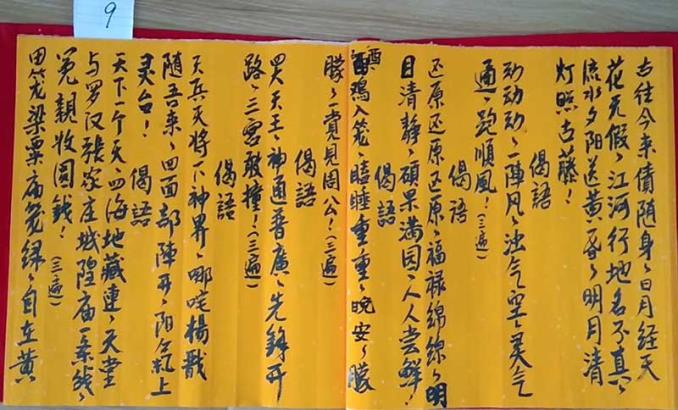 9
古往今来债随身、日月经天
花无假、江河行地名不真、
流水夕阳送黄昏、明月清
灯照古藤！
偈语
动动动、一阵风、浊气罡、灵气
通、跑顺风！（三遍）
偈语
还原还原还原、福禄绵绵、明
目清静、硕果满园、人人尝鲜！
偈语
酉鸡入笼、瞌睡重重、晚安、朦
朦、赏见周公！（三遍）
偈语
四大天王、神通普广、先锋开
路、三宫敢撞！（三遍）
偈语
天兵天将下神界、哪咤杨戬
随吾来、四面部阵开、阳气上
灵台！
偈语
天下一个天、四海地藏连、天堂
与罗汉张家庄城隍庙一条线、
冤亲收圆钱！（三遍）
笼梁栗庙笼绿、自在黄